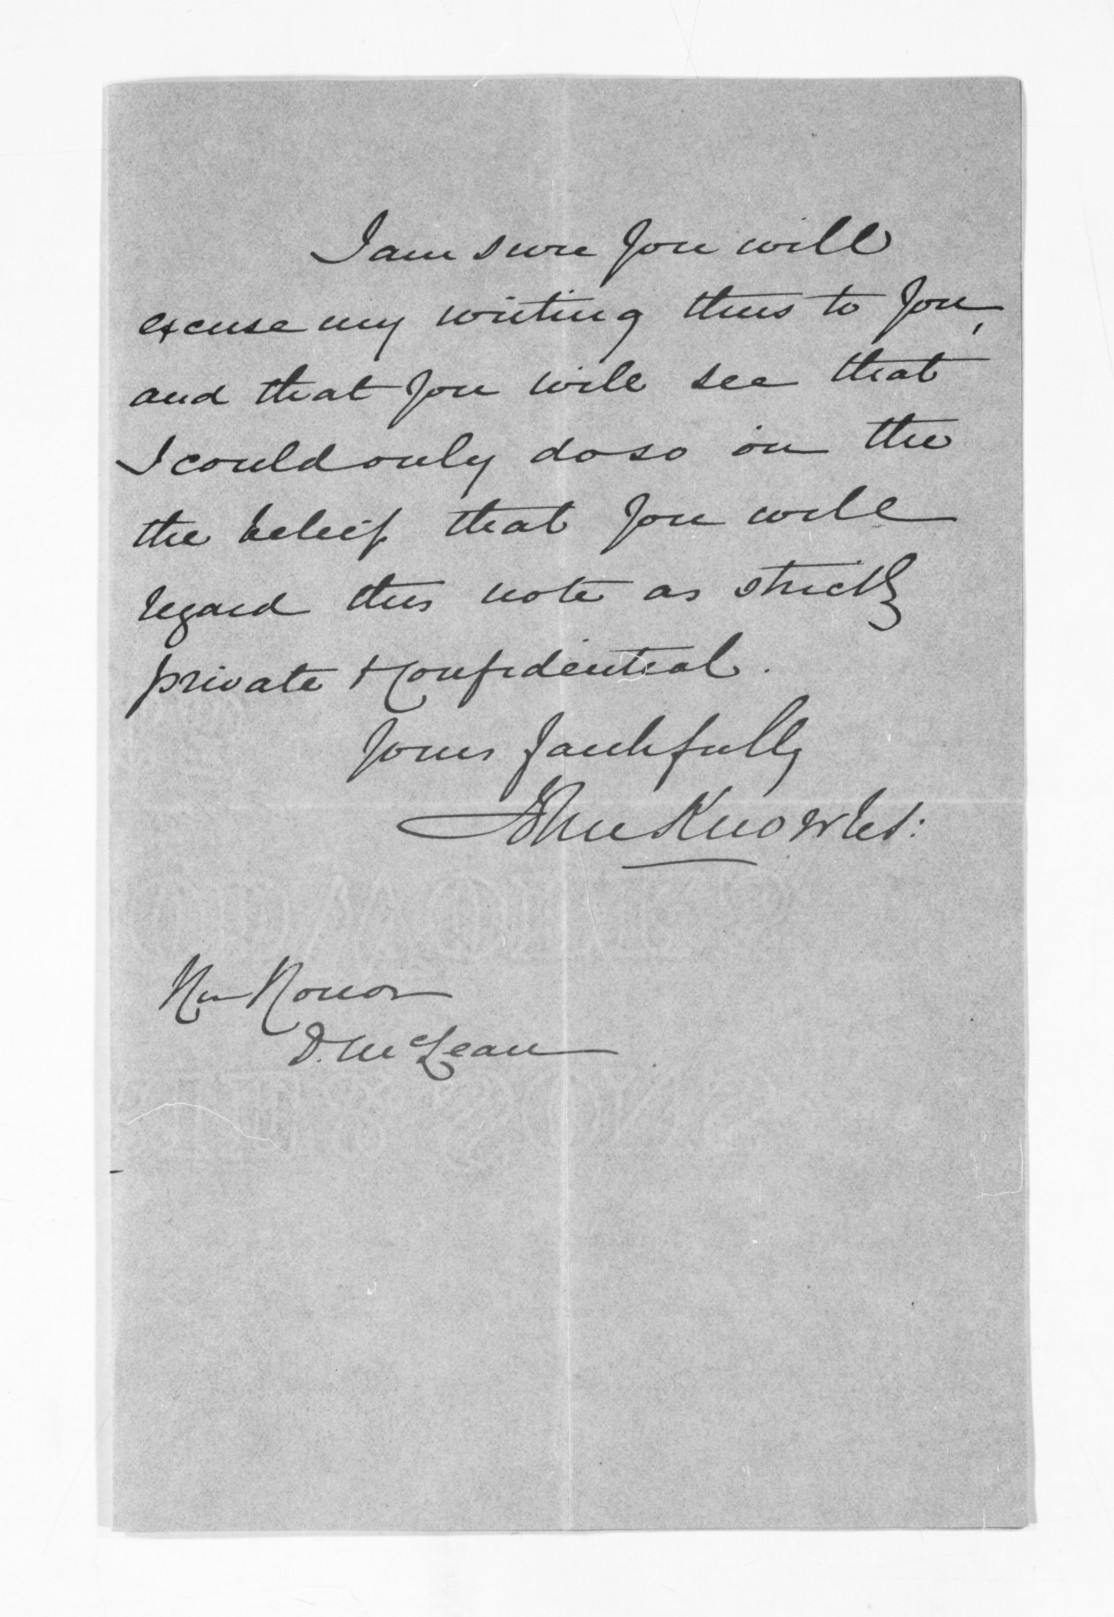 I am sure you will
excuse my writing thus to you,
and that you will see that
I could only do so in the
the belief that you will
regard this note as strictly
private & confidential.
Yours faithfully
John Knowles:
His Honor
D. McLean